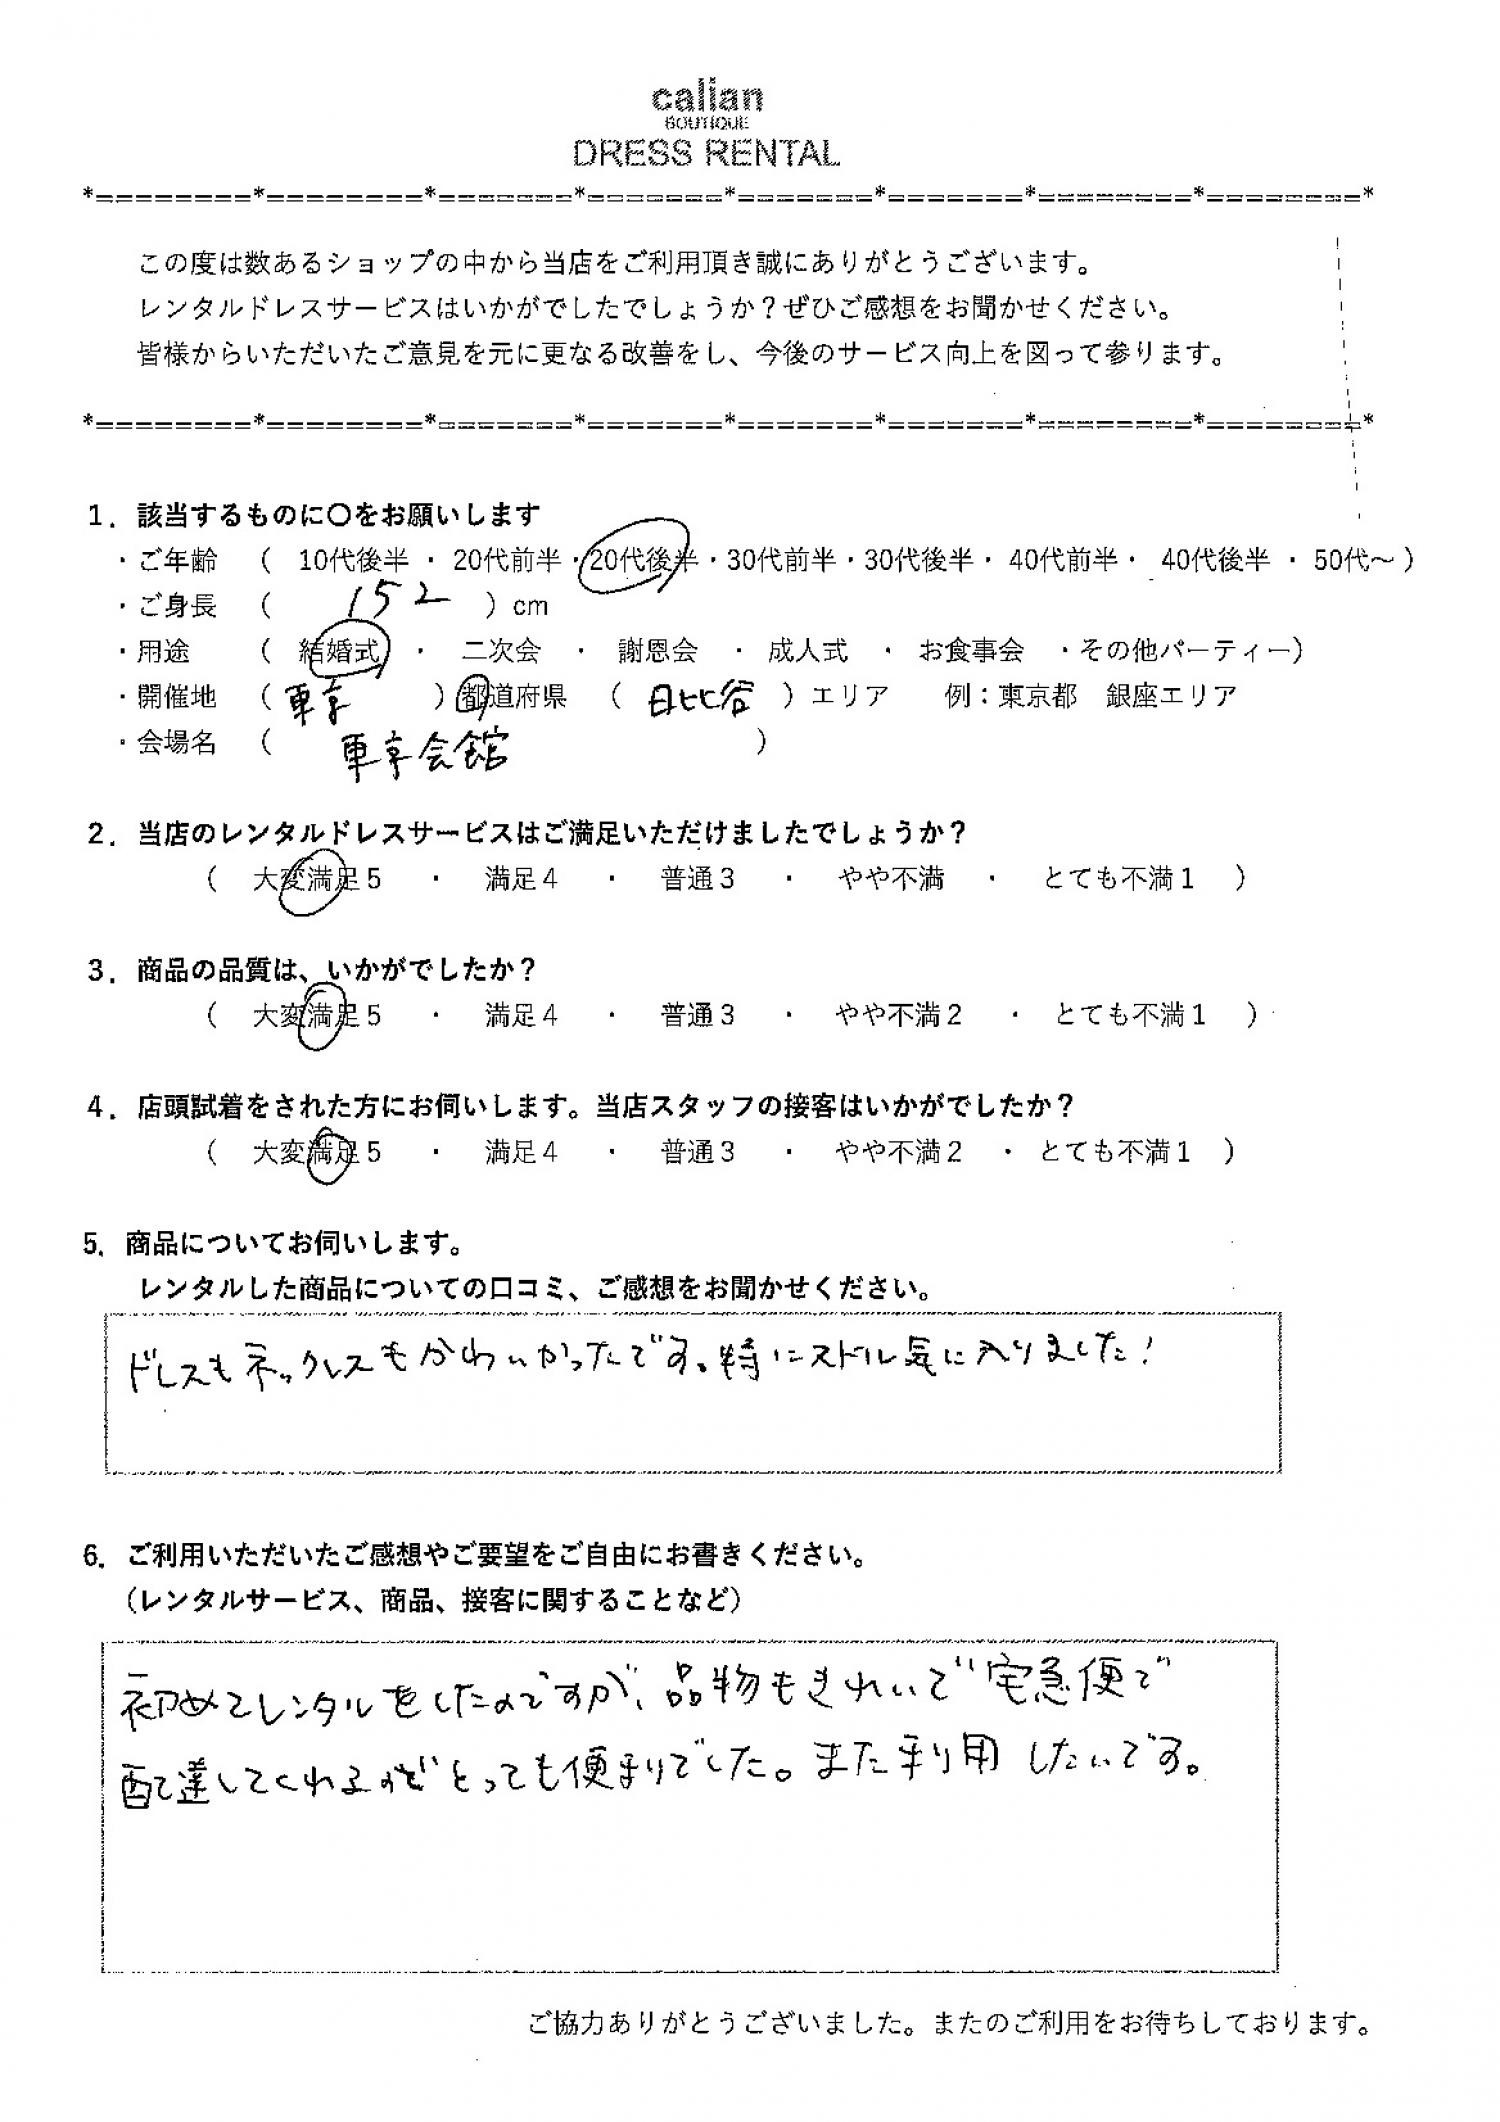 calian
BOUTIQUE
DRESS RENTAL
*========*========*=======*=======*=======*=======*========*========*
この度は数あるショップの中から当店をご利用頂き誠にありがとうございます。
レンタルドレスサービスはいかがでしたでしょうか？ぜひご感想をお聞かせください。
皆様からいただいたご意見を元に更なる改善をし、今後のサービス向上を図って参ります。
*========*========*=======*=======*=======*=======*========*========*
1．該当するものに〇をお願いします
・ご年齢 （ 10代後半 ・ 20代前半・20代後半・30代前半・30代後半・ 40代前半・ 40代後半 ・ 50代～）
・ご身長 （ 152 ）cm
・用途 （ 結婚式 ・ 二次会 ・ 謝恩会 ・ 成人式 ・ お食事会 ・その他パーティー）
・開催地 （ 東京 ）都道府県 （ 日比谷 ）エリア 例：東京都 銀座エリア
・会場名 （ 東京会館 ）
2．当店のレンタルドレスサービスはご満足いただけましたでしょうか？
（ 大変満足5 ・ 満足4 ・ 普通3 ・ やや不満 ・ とても不満1 ）
3．商品の品質は、いかがでしたか？
（ 大変満足5 ・ 満足4 ・ 普通3 ・ やや不満2 ・ とても不満1 ）
4．店頭試着をされた方にお伺いします。当店スタッフの接客はいかがでしたか？
（ 大変満足5 ・ 満足4 ・ 普通3 ・ やや不満2 ・ とても不満1 ）
5．商品についてお伺いします。
レンタルした商品についての口コミ、ご感想をお聞かせください。
ドレスもネックレスもかわいかったです。特にストル気に入りました！
6．ご利用いただいたご感想やご要望をご自由にお書きください。
（レンタルサービス、商品、接客に関することなど）
初めてレンタルをしたのですが、品物もきれいで宅急便で
配達してくれるのでとっても便利でした。また利用したいです。
ご協力ありがとうございました。またのご利用をお待ちしております。